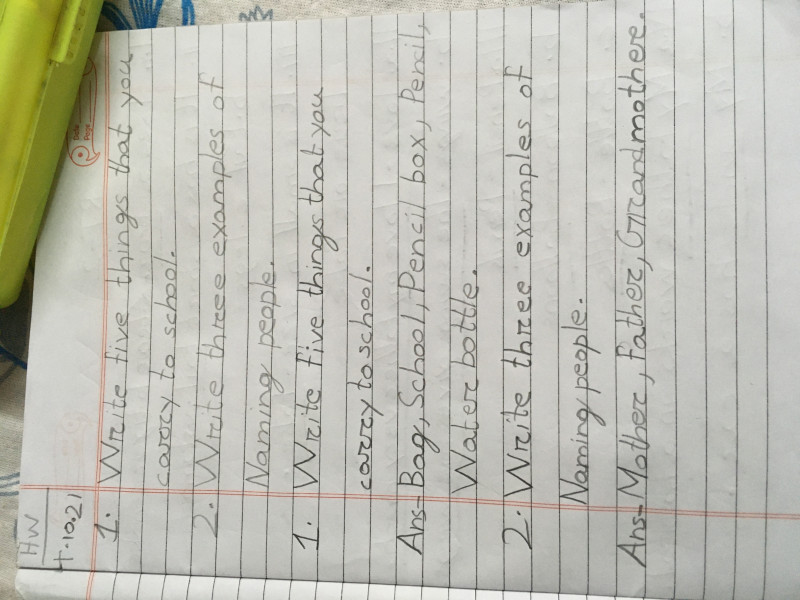 HW
4.10.21
Date
Page
1. Write five things that you
carry to school.
2. Write three examples of
Naming people.
1. Write five things that you
carry to school.
Ans- Bag, School, Pencil box, Pencil,
Water bottle.
2. Write three examples of
Naming people.
Ans- Mother, Father, Grandmothere.